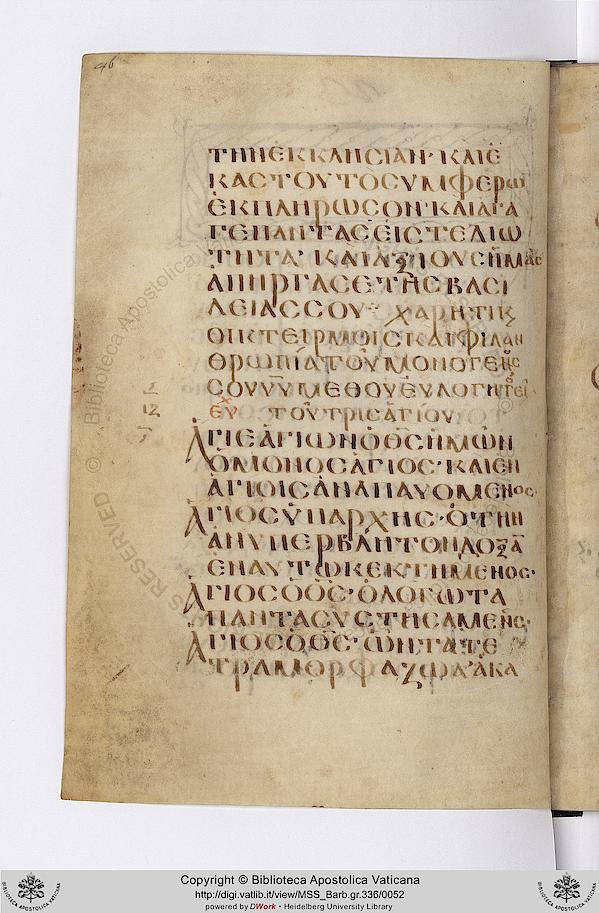 46
ΤΗΝ ΕΚΚΛΗΣΙΑΝ· ΚΑΙ Ε
ΚΑΣΤΟΥ ΤΟ ΣΥΜΦΕΡΩ
ΕΚΠΛΗΡΩΣΟΝ· ΚΑΙ ΑΓΑ
ΓΕ ΠΑΝΤΑΣ ΕΙΣ ΤΕΛΙΩ
ΤΗΤΑ· ΚΑΙ ΑΞΙΟΥΣ ΗΜΑΣ
ΑΠΗΡΓΑΣΕ ΤΗΣ ΒΑΣΙ
ΛΕΙΑΣ ΣΟΥ· ΧΑΡΗΤΙ Κ
ΟΙΚΤΕΙΡΜΟΙΣ ΚΑΙ ΦΙΛΑΝ
ΘΡΩΠΙΑ ΤΟΥ ΜΟΝΟΓΕΝΗΣ
ΣΟΥ ΥΥ ΜΕΘ ΟΥ ΕΥΛΟΓΗΤΟΣ ΕΙ
ΕΥΧ ΤΟΥ ΤΡΙΣΑΓΙΟΥ
ΑΓΙΕ ΑΓΙΩΝ Ο ΘΣ ΗΜΩΝ
Ο ΜΟΝΟΣ ΑΓΙΟΣ· ΚΑΙ ΕΝ
ΑΓΙΟΙΣ ΑΝΑΠΑΥΟΜΕΝΟΣ·
ΑΓΙΟΣ ΥΠΑΡΧΗΣ· Ο ΤΗΝ
ΑΝΥΠΕΡΒΛΗΤΟΝ ΔΟΞΑ
ΕΝ ΑΥΤΩ ΚΕΚΤΗΜΕΝΟΣ·
ΑΓΙΟΣ Ο ΘΣ· Ο ΛΟΓΩ ΤΑ
ΠΑΝΤΑ ΣΥΣΤΗΣΑΜΕΝΟΣ·
ΑΓΙΟΣ Ο ΘΣ· ΩΝ ΤΑ ΤΕ
ΤΡΑΜΟΡΦΑ ΖΩΑ· ΑΚΑ
© Biblioteca Apostolica Vaticana
Copyright © Biblioteca Apostolica Vaticana
http://digi.vatlib.it/view/MSS_Barb.gr.336/0052
powered by DWork • Heidelberg University Library